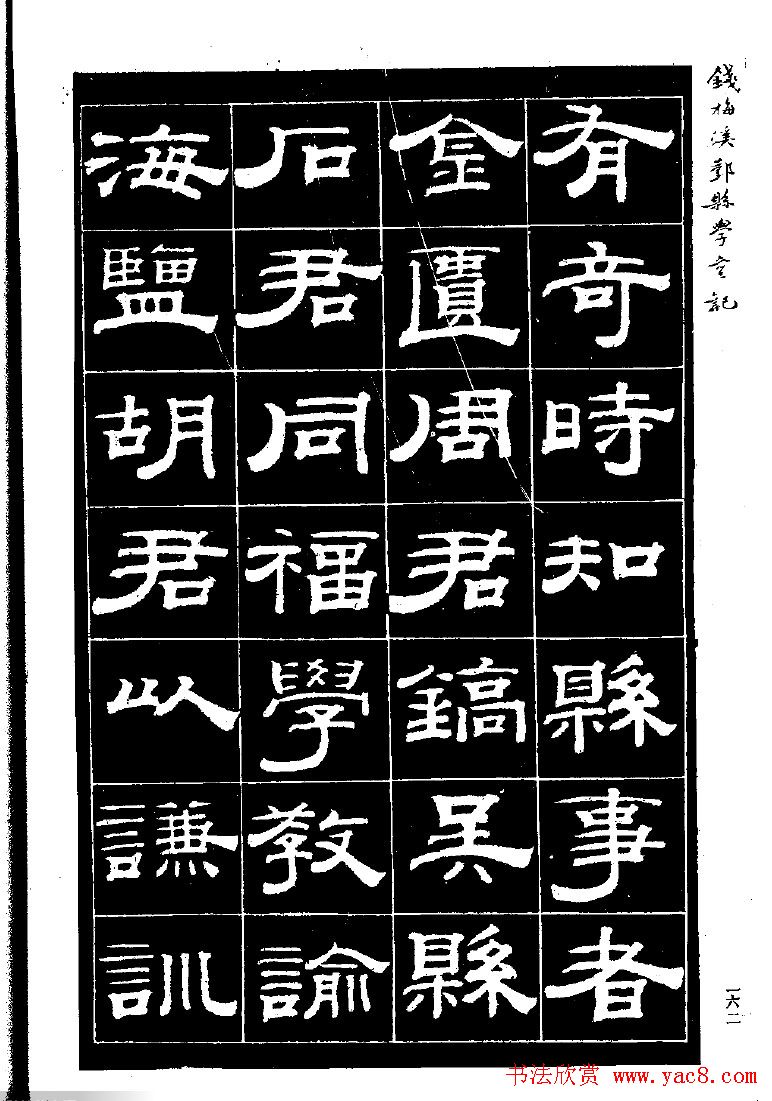 錢梅溪鄞縣學㝎記
有奇時知縣事者
金匱周君鎬吴縣
石君同福學教諭
海鹽胡君以謙訓
一六二
书法欣赏 www.yac8.com